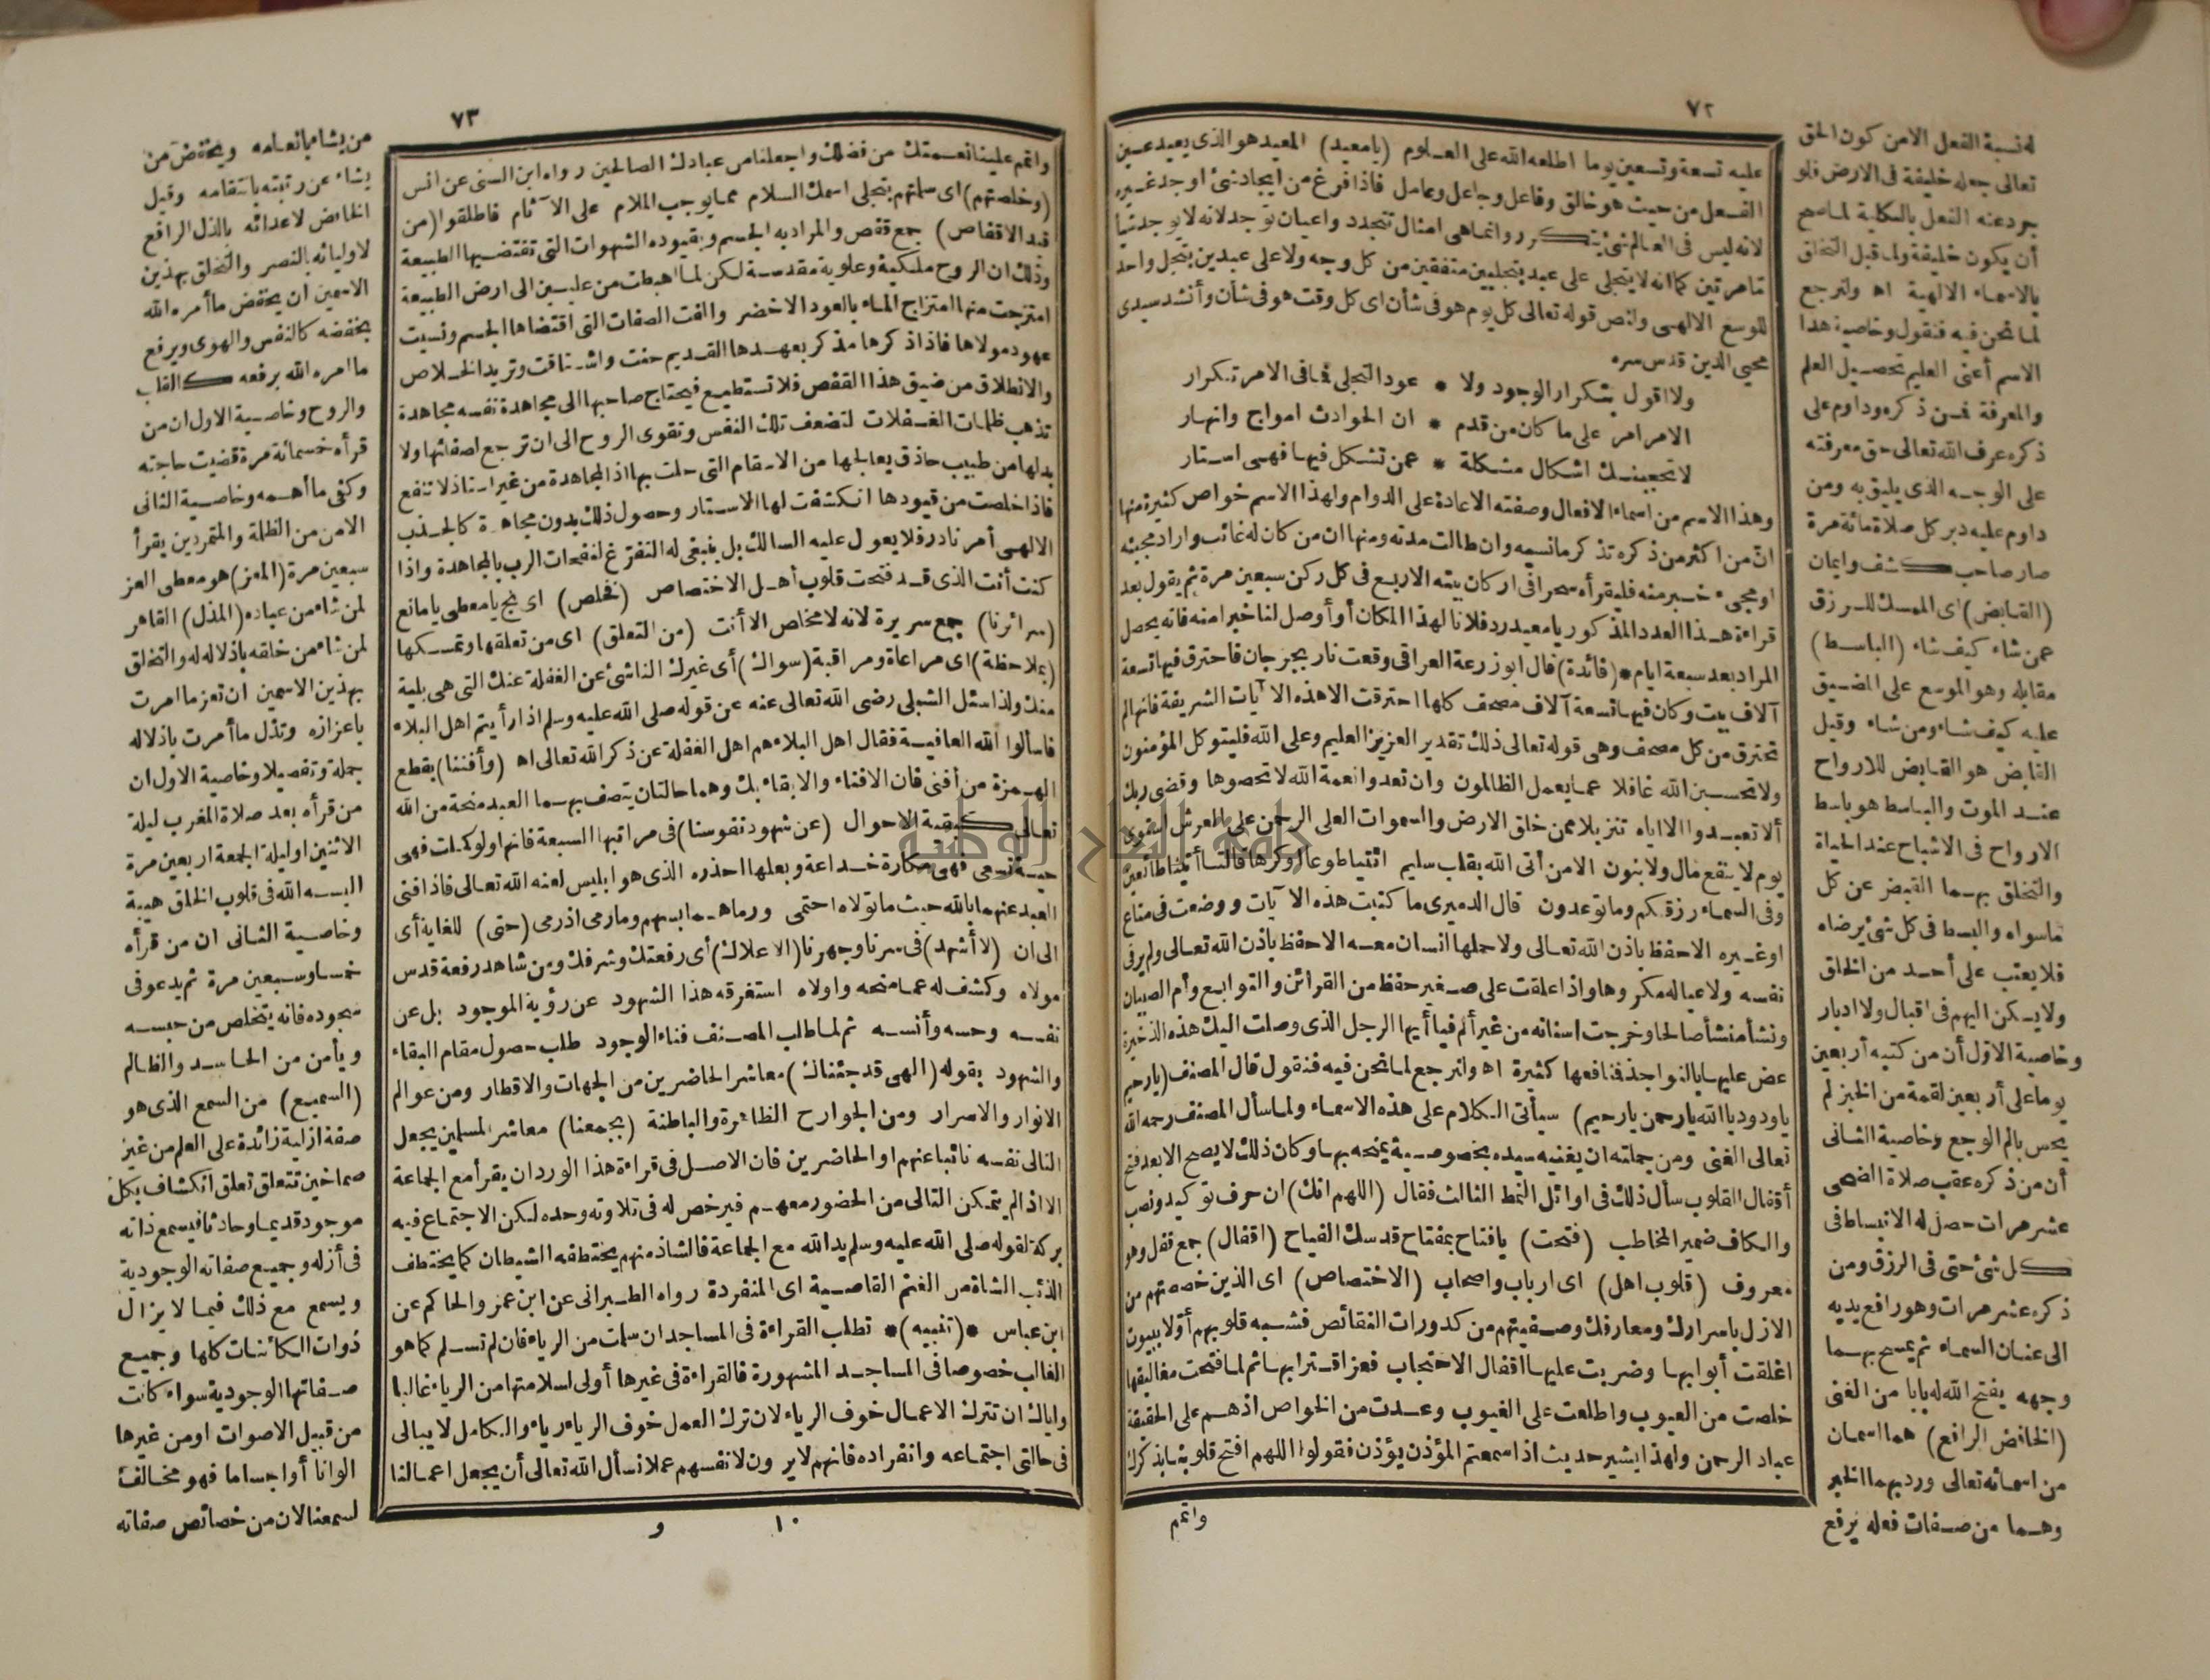 ٧٢
عليه تسعة وتسعين يوما اطلعه الله على العلوم (يا معيد) المعيد هو الذى يعيد عين
الفعل من حيث هو خالق وفاعل وجاعل وعامل فاذا فرغ من ايجاد شئ اوجد غيره
لانه ليس فى العالم شئ يتكرر وانما هى امثال تتجدد واعيان توجد لانه لا يوجد شيأ
ثمامرتين كما انه لا يتجلى على عبد بتجليين متفقين من كل وجه ولا على عبدين بتجل واحد
للوسع الالهى ولنص قوله تعالى كل يوم هو فى شأن اى كل وقت هو فى شأن وأنشد سيدى
محيى الدين قدس سره
ولا اقول بتكرار الوجود ولا * عود التجلى فما فى الامر تكرار
الامر امر على ما كان من قدم * ان الحوادث امواج وانهار
لا تحجبنك اشكال مشكلة * عمن تشكل فيها فهى استار
وهذا الاسم من اسماء الافعال وصفته الاعادة على الدوام ولهذا الاسم خواص كثيرة منها
ان من اكثر من ذكره تذكر ما نسيه وان طالت مدته ومنها ان من كان له غائب واراد مجيئه
او مجىء خبر منه فليقرأه سحرا فى اركان بيته الاربع فى كل ركن سبعين مرة ثم يقول بعد
قراءة هذا العدد المذكور يا معيد رد فلانا لهذا المكان أو أوصل لنا خبرا منه فانه يحصل
المراد بعد سبعة ايام * (فائدة) قال ابو زرعة العراقى وقعت نار بجرجان فاحترق فيها تسعة
آلاف بيت وكان فيها تسعة آلاف مصحف كلها احترقت الا هذه الآيات الشريفة فانها لم
تحترق من كل مصحف وهى قوله تعالى ذلك تقدير العزيز العليم وعلى الله فليتوكل المؤمنون
ولا تحسبن الله غافلا عما يعمل الظالمون وان تعدوا نعمة الله لا تحصوها وقضى ربك
ألا تعبدوا الا اياه تنزيلا ممن خلق الارض والسموات العلى الرحمن على العرش استوى
يوم لا ينفع مال ولا بنون الا من أتى الله بقلب سليم ائتيا طوعا او كرها قالتا أتينا طائعين
وفى السماء رزقكم وما توعدون قال الدميرى ما كتبت هذه الآيات ووضعت فى متاع
او غيره الا حفظ باذن الله تعالى ولا حملها انسان معه الا حفظ باذن الله تعالى ولم ير فى
نفسه ولا عياله مكروها واذا علقت على صغير حفظ من القرائن والتوابع وأم الصبيان
ونشأ منشأ صالحا وخرجت اسنانه من غير ألم فيا أيها الرجل الذى وصلت اليك هذه الذخيرة
عض عليها بالنواجذ فنافعها كثيرة اه ولنرجع لما نحن فيه فنقول قال المصنف (يا رحيم
يا ودود يا الله يا رحمن يا رحيم) سيأتى الكلام على هذه الاسماء ولما سأل المصنف رحمه الله
تعالى الغنى ومن جملته ان يغنيه سيده بخصوصية يمنحه بها وكان ذلك لا يصح الا بعد فتح
أقفال القلوب سأل ذلك فى اوائل النمط الثالث فقال (اللهم انك) ان حرف توكيد ونصب
والكاف ضمير المخاطب (فتحت) يا فتاح بمفتاح قدسك الفياح (اقفال) جمع قفل وهو
معروف (قلوب اهل) اى ارباب واصحاب (الاختصاص) اى الذين خصصتهم من
الازل باسرارك ومعارفك وصفيتهم من كدورات النقائص فشبه قلوبهم أولا ببيوت
اغلقت أبوابها وضربت عليها اقفال الاحتجاب فعز اقترابها ثم لما فتحت مغاليقها
خلصت من العيوب واطلعت على الغيوب وعدت من الخواص اذ هم على الحقيقة
عباد الرحمن ولهذا يشير حديث اذا سمعتم المؤذن يؤذن فقولوا اللهم افتح قلوبنا بذكرك
واتمم
له نسبة الفعل الا من كون الحق
تعالى جعله خليفة فى الارض فلو
جرد عنه الفعل بالكلية لما صح
أن يكون خليفة ولما قبل التخلق
بالاسماء الالهية اه ولنرجع
لما نحن فيه فنقول وخاصية هذا
الاسم أعنى العليم تحصيل العلم
والمعرفة فمن ذكره وداوم على
ذكره عرف الله تعالى حق معرفته
على الوجه الذى يليق به ومن
داوم عليه دبر كل صلاة مائة مرة
صار صاحب كشف وايمان
(القابض) اى الممسك للرزق
عمن شاء كيف شاء (الباسط)
مقابله وهو الموسع على المضيق
عليه كيف شاء ومن شاء وقيل
القابض هو القابض للارواح
عند الموت والباسط هو باسط
الارواح فى الاشباح عند الحياة
والتخلق بهما القبض عن كل
ما سواه والبسط فى كل شئ يرضاه
فلا يعتب على أحد من الخلق
ولا يسكن اليهم فى اقبال ولا ادبار
وخاصية الاول أن من كتبه أربعين
يوما على أربعين لقمة من الخبز لم
يحس بالم الوجع وخاصية الثانى
أن من ذكره عقب صلاة الضحى
عشر مرات حصل له الانبساط فى
كل شئ حتى فى الرزق ومن
ذكره عشر مرات وهو رافع يديه
الى عنان السماء ثم يمسح بهما
وجهه يفتح الله له بابا من الغنى
(الخافض الرافع) هما اسمان
من اسمائه تعالى ورد بهما الخبر
وهما من صفات فعله يرفع
٧٣
واتمم علينا نعمتك من فضلك واجعلنا من عبادك الصالحين رواه ابن السنى عن انس
(وخلصتهم) اى سلمتهم بتجلى اسمك السلام مما يوجب الملام على الآثام فاطلقوا (من
قيد الاقفاص) جمع قفص والمراد به الجسم وبقيوده الشهوات التى تقتضيها الطبيعة
وذلك ان الروح ملكية وعلوية مقدسة لكن لما اهبطت من عليين الى ارض الطبيعة
امتزجت منها امتزاج الماء بالعود الاخضر والفت الصفات التى اقتضاها الجسم ونسيت
عهود مولاها فاذا ذكرها مذكر بعهدها القديم حنت واشتاقت وتريد الخلاص
والانطلاق من ضيق هذا القفص فلا تستطيع فيحتاج صاحبها الى مجاهدة نفسه مجاهدة
تذهب ظلمات الغفلات لتضعف تلك النفس وتقوى الروح الى ان ترجع لصفائها ولا
بد لها من طبيب حاذق يعالجها من الاسقام التى حلت بها اذ المجاهدة من غير استاذ لا تنفع
فاذا خلصت من قيودها انكشفت لها الاستار وحصول ذلك بدون مجاهدة كالجذب
الالهى أمر نادر فلا يعول عليه السالك بل ينبغى له التفرغ لنفحات الرب بالمجاهدة واذا
كنت أنت الذى قد فتحت قلوب أهل الاختصاص (فخلص) اى نج يا معطى يا مانع
(سرائرنا) جمع سريرة لانه لا مخلص الا أنت (من التعلق) اى من تعلقها وتمسكها
(بملاحظة) اى مراعاة ومراقبة (سواك) أى غيرك الناشئ عن الغفلة عنك التى هى بلية
منك ولذا سئل الشبلى رضى الله تعالى عنه عن قوله صلى الله عليه وسلم اذا رأيتم اهل البلاء
فاسألوا الله العافية فقال اهل البلاء هم اهل الغفلة عن ذكر الله تعالى اه (وأفننا) بقطع
الهمزة من أفنى فان الافناء والابقاء بك وهما حالتان يتصف بهما العبد منحة من الله
تعالى كبقية الاحوال (عن شهود نفوسنا) فى مراتبها السبعة فانها ولو كملت فهى
حية تسعى فهى مكارة خداعة وبعلها احذره الذى هو ابليس لعنه الله تعالى فاذا فنى
العبد عنهما بالله حيث ما تولاه احتمى ورماهما بسهم وما رمى اذ رمى (حتى) للغاية أى
الى ان (لا أشهد) فى سرنا وجهرنا (الا علاك) أى رفعتك وشرفك ومن شاهد رفعة قدس
مولاه وكشف له عما منحه واولاه استغرقه هذا الشهود عن رؤية الموجود بل عن
نفسه وحسه وأنسه ثم لما طلب المصنف فناء الوجود طلب حصول مقام البقاء
والشهود بقوله (الهى قد جئناك) معاشر الحاضرين من الجهات والاقطار ومن عوالم
الانوار والاسرار ومن الجوارح الظاهرة والباطنة (بجمعنا) معاشر المسلمين بجعل
التالى نفسه نائبا عنهم او الحاضرين فان الاصل فى قراءة هذا الورد ان يقرأ مع الجماعة
الا اذا لم يتمكن التالى من الحضور معهم فيرخص له فى تلاوته وحده لكن الاجتماع فيه
بركة لقوله صلى الله عليه وسلم يد الله مع الجماعة فالشاذ منهم يختطفه الشيطان كما يختطف
الذئب الشاة من الغنم القاصية اى المنفردة رواه الطبرانى عن ابن عمر والحاكم عن
ابن عباس * (تنبيه) * تطلب القراءة فى المساجد ان سلمت من الرياء فان لم تسلم كما هو
الغالب خصوصا فى المساجد المشهورة فالقراءة فى غيرها أولى لسلامتها من الرياء غالبا
واياك ان تترك الاعمال خوف الرياء لان ترك العمل خوف الرياء رياء والكامل لا يبالى
فى حالتى اجتماعه وانفراده فانهم لا يرون لانفسهم عملا نسأل الله تعالى أن يجعل اعمالنا
١٠ و
من يشاء بانعامه ويخفض من
يشاء عن رتبته بانتقامه وقيل
الخافض لاعدائه بالذل الرافع
لاوليائه بالنصر والتخلق بهذين
الاسمين ان يخفض ما أمره الله
بخفضه كالنفس والهوى ويرفع
ما امره الله برفعه كالقلب
والروح وخاصية الاول ان من
قرأه خمسمائة مرة قضيت حاجته
وكفى ما أهمه وخاصية الثانى
الامن من الظلمة والمتمردين يقرأ
سبعين مرة (المعز) هو معطى العز
لمن شاء من عباده (المذل) القاهر
لمن شاء من خلقه باذلاله له والتخلق
بهذين الاسمين ان تعز ما امرت
باعزازه وتذل ما أمرت باذلاله
جملة وتفصيلا وخاصية الاول ان
من قرأه بعد صلاة المغرب ليلة
الاثنين او ليلة الجمعة اربعين مرة
البسه الله فى قلوب الخلق هيبة
وخاصية الثانى ان من قرأه
خمسا وسبعين مرة ثم يدعو فى
سجوده فانه يتخلص من حبسه
ويأمن من الحاسد والظالم
(السميع) من السمع الذى هو
صفة ازلية زائدة على العلم من غير
صماخين تتعلق تعلق انكشاف بكل
موجود قديما وحادثا فيسمع ذاته
فى أزله وجميع صفاته الوجودية
ويسمع مع ذلك فيما لا يزال
ذوات الكائنات كلها وجميع
صفاتها الوجودية سواء كانت
من قبيل الاصوات او من غيرها
الوانا أو اجساما فهو مخالف
لسمعنا لان من خصائص صفاته